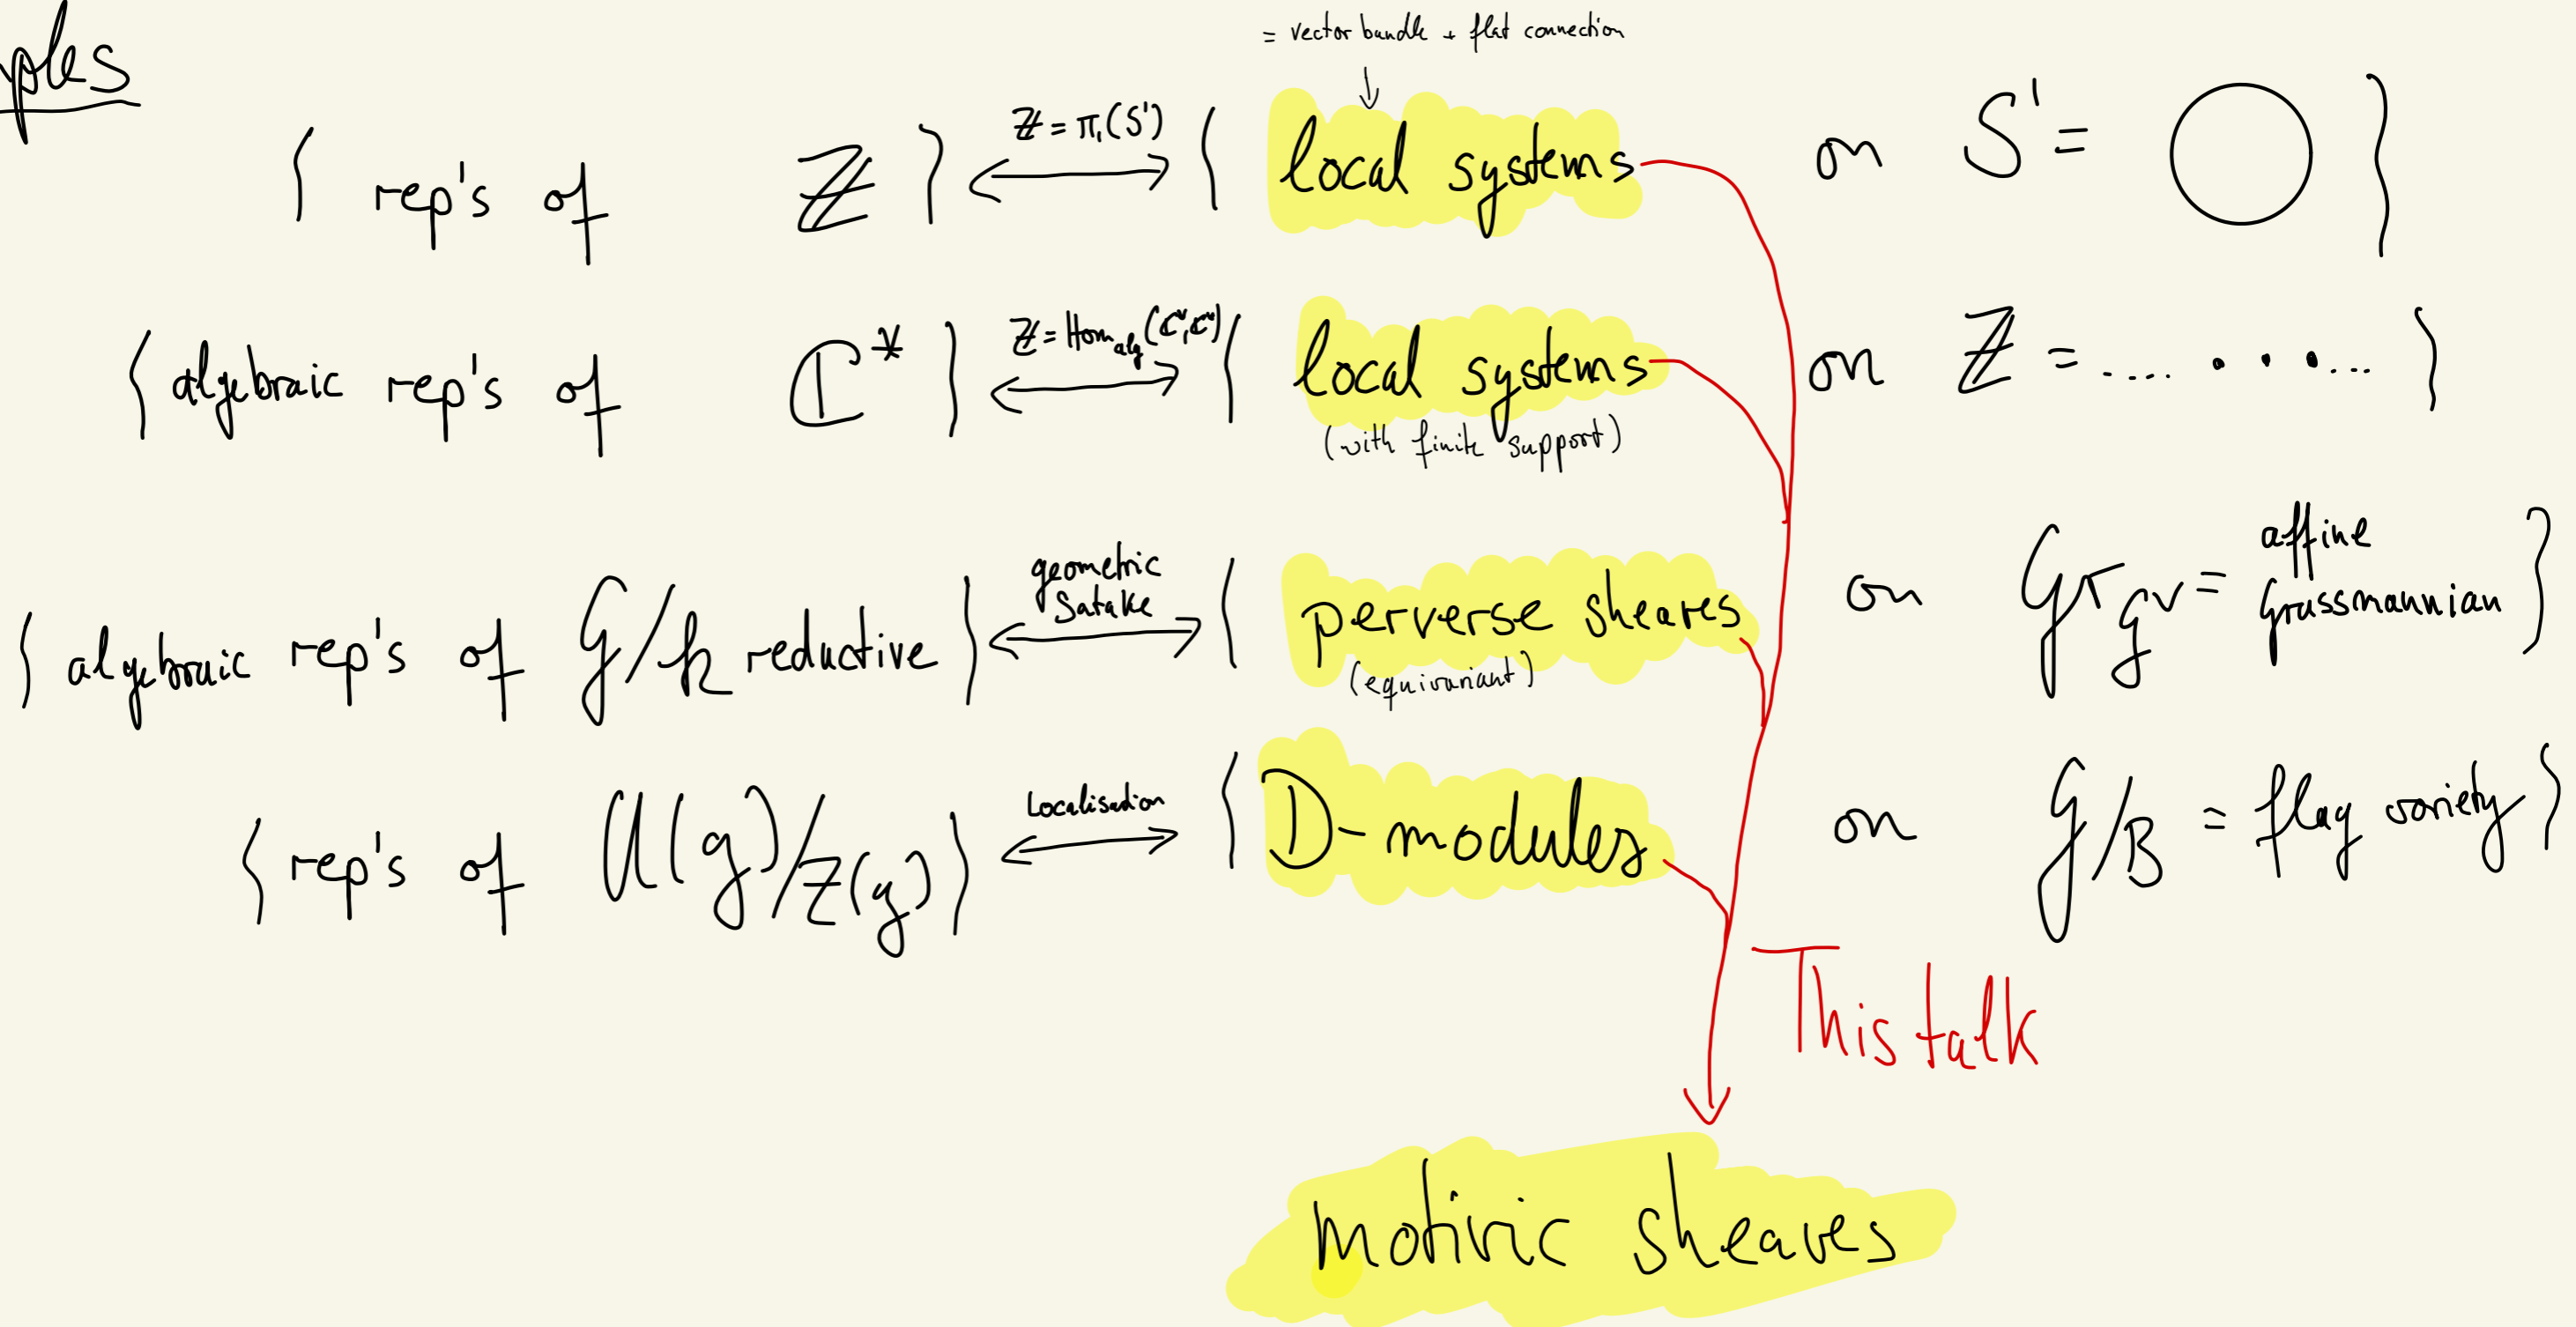 ples
= vector bundle + flat connection
↓
{ rep's of ℤ } ⟷ ℤ = π₁(S¹) { local systems on S¹ = ◯ }
{ algebraic rep's of ℂ* } ⟷ ℤ = Hom_alg(ℂ*, ℂ*) { local systems on ℤ = .... • • • ... }
(with finite support)
{ algebraic rep's of G/k reductive } ⟷ geometric Satake { perverse sheaves on Gr_G∨ = affine Grassmannian }
(equivariant)
{ rep's of U(g)/Z(g) } ⟷ Localisation { D-modules on G/B = flag variety }
This talk
motivic sheaves